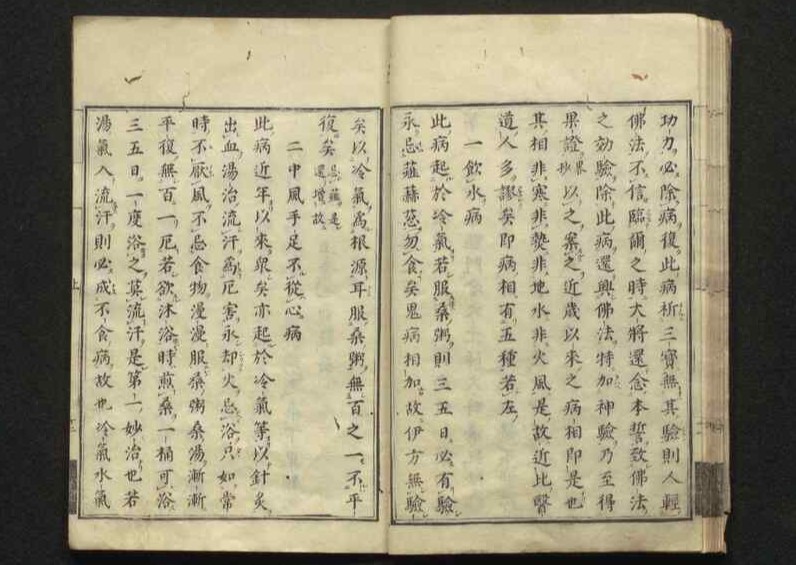 功力必除病復此病祈三寶無其驗則人輕
佛法不信臨爾之時大將還念本誓致佛法
之効驗除此病還興佛法特加神驗乃至得
果證以之案之近歳以來之病相即是也
其相非寒非熱非地水非火風是故近比醫
道人多謬矣即病相有五種若左
一飲水病
此病起於冷氣若服桑粥則三五日必有驗
永忌薤蒜葱勿食矣鬼病相加故伊方無驗
矣以冷氣爲根源耳服桑粥無百之一不平
復矣忌薤是還増故
二中風手足不從心病
此病近年以來衆矣亦起於冷氣等以針灸
出血湯治流汗爲厄害永却火忌浴只如常
時不厭風不忌食物漫漫服桑粥桑湯漸漸
平復無百一厄若欲沐浴時煎桑一桶可浴
三五日一度浴之莫流汗是第一妙治也若
湯氣入流汗則必成不食病故也冷氣水氣